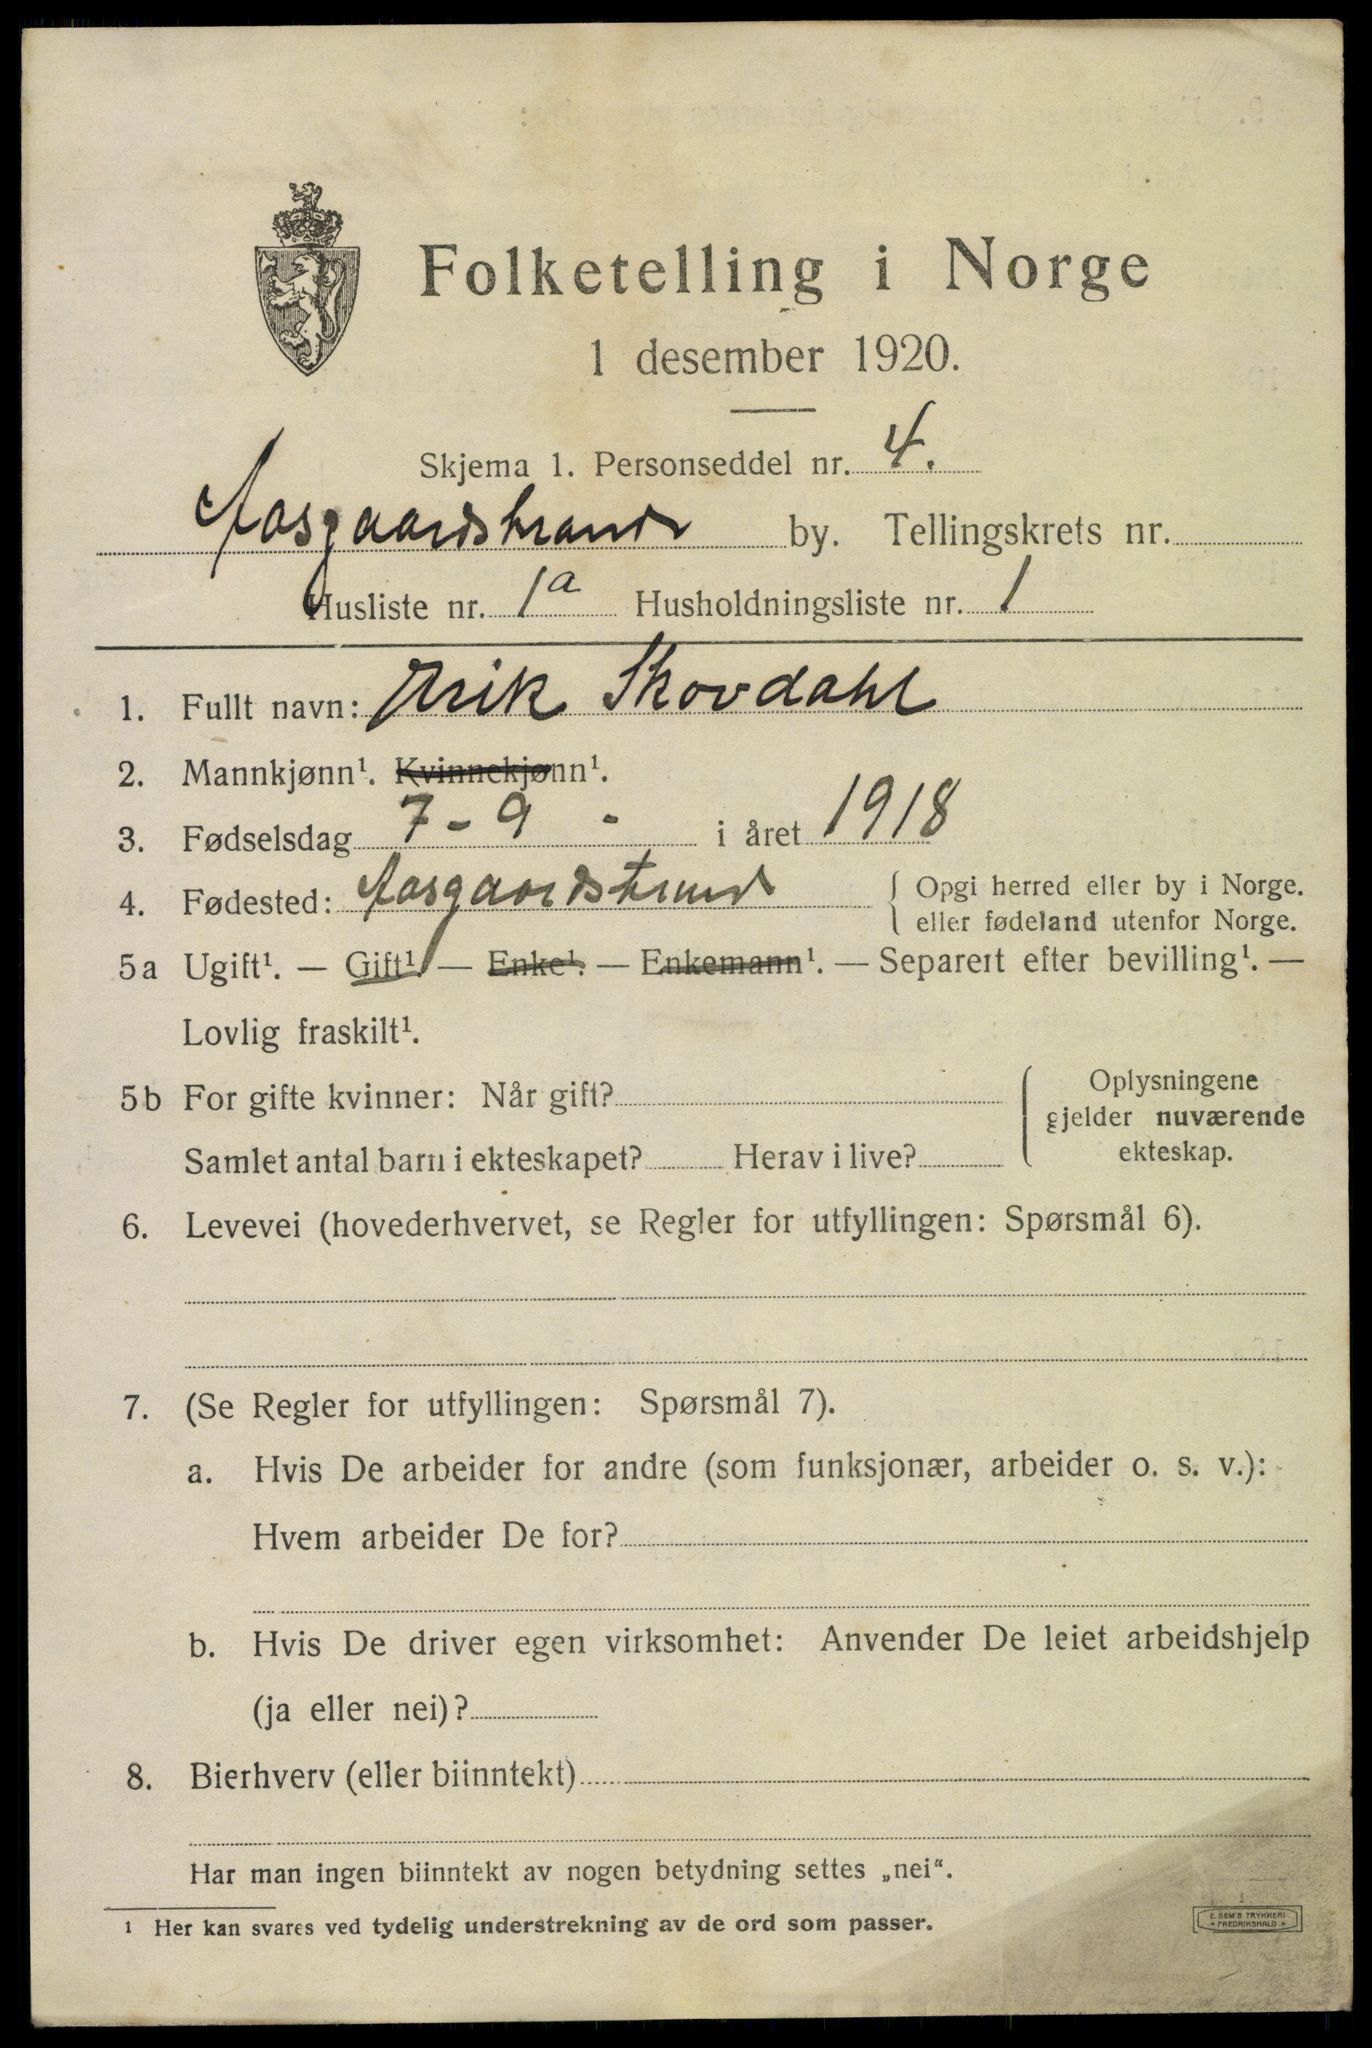 Folketelling i Norge
1 desember 1920.
Skjema 1. Personseddel nr. 4.
Aasgaardstrand by. Tellingskrets nr.
Husliste nr. 1a Husholdningsliste nr. 1
1. Fullt navn: Erik Skovdahl
2. Mannkjønn¹. Kvinnekjønn¹.
3. Fødselsdag 7 - 9 - i året 1918
4. Fødested: Aasgaardstrand { Opgi herred eller by i Norge.
eller fødeland utenfor Norge.
5a Ugift¹. — Gift¹ — Enke¹. — Enkemann¹. — Separert efter bevilling¹. —
Lovlig fraskilt¹.
5b For gifte kvinner: Når gift?
Samlet antal barn i ekteskapet? Herav i live?
Oplysningene
gjelder nuværende
ekteskap.
6. Levevei (hovederhvervet, se Regler for utfyllingen: Spørsmål 6).
7. (Se Regler for utfyllingen: Spørsmål 7).
a. Hvis De arbeider for andre (som funksjonær, arbeider o. s. v.):
Hvem arbeider De for?
b. Hvis De driver egen virksomhet: Anvender De leiet arbeidshjelp
(ja eller nei)?
8. Bierhverv (eller biinntekt)
Har man ingen biinntekt av nogen betydning settes „nei“.
¹ Her kan svares ved tydelig understrekning av de ord som passer.
E. SEM'S TRYKKERI
* FREDRIKSHALD *